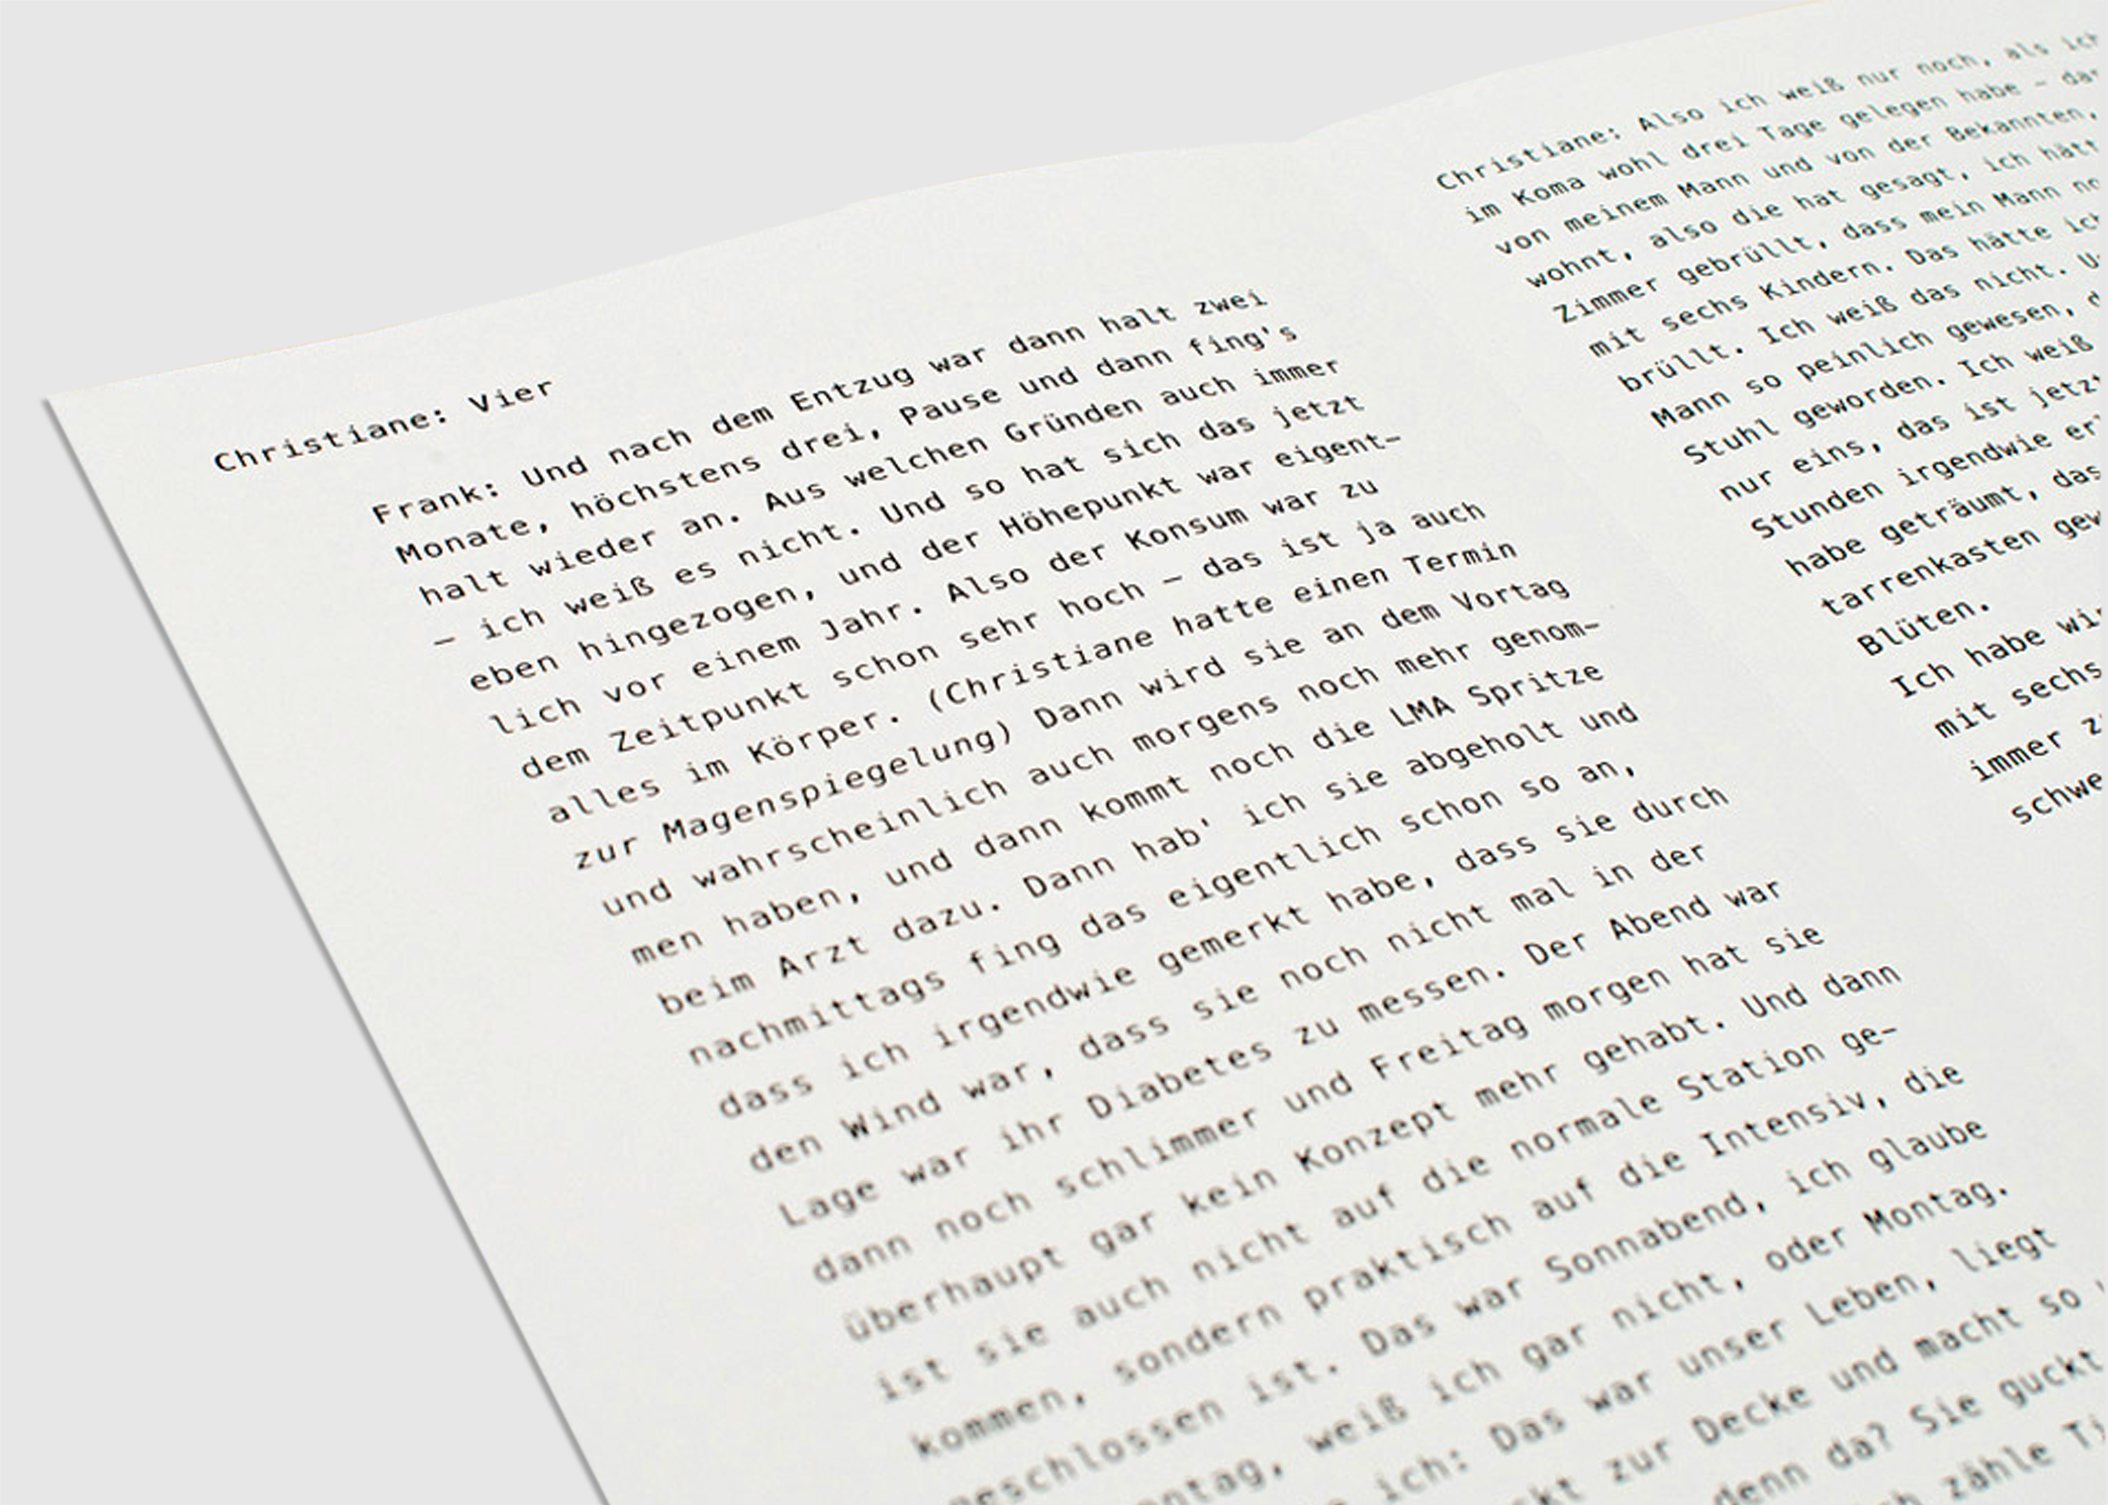 Christiane: Vier
Frank: Und nach dem Entzug war dann halt zwei
Monate, höchstens drei, Pause und dann fing's
halt wieder an. Aus welchen Gründen auch immer
– ich weiß es nicht. Und so hat sich das jetzt
eben hingezogen, und der Höhepunkt war eigent-
lich vor einem Jahr. Also der Konsum war zu
dem Zeitpunkt schon sehr hoch – das ist ja auch
alles im Körper. (Christiane hatte einen Termin
zur Magenspiegelung) Dann wird sie an dem Vortag
und wahrscheinlich auch morgens noch mehr genom-
men haben, und dann kommt noch die LMA Spritze
beim Arzt dazu. Dann hab' ich sie abgeholt und
nachmittags fing das eigentlich schon so an,
dass ich irgendwie gemerkt habe, dass sie durch
den Wind war, dass sie noch nicht mal in der
Lage war ihr Diabetes zu messen. Der Abend war
dann noch schlimmer und Freitag morgen hat sie
überhaupt gar kein Konzept mehr gehabt. Und dann
ist sie auch nicht auf die normale Station ge-
kommen, sondern praktisch auf die Intensiv, die
geschlossen ist. Das war Sonnabend, ich glaube
weiß ich gar nicht, oder Montag.
ich: Das war unser Leben, liegt
zur Decke und macht so
denn da? Sie guckt
zähle
Christiane: Also ich weiß nur noch, als ich
im Koma wohl drei Tage gelegen habe –
von meinem Mann und von der Bekannten,
wohnt, also die hat gesagt, ich
Zimmer gebrüllt, dass mein Mann
mit sechs Kindern. Das hätte ich
brüllt. Ich weiß das nicht.
Mann so peinlich gewesen,
Stuhl geworden. Ich weiß
nur eins, das ist jetzt
Stunden irgendwie
habe geträumt,
tarrenkasten
Blüten.
Ich habe
mit sechs
immer